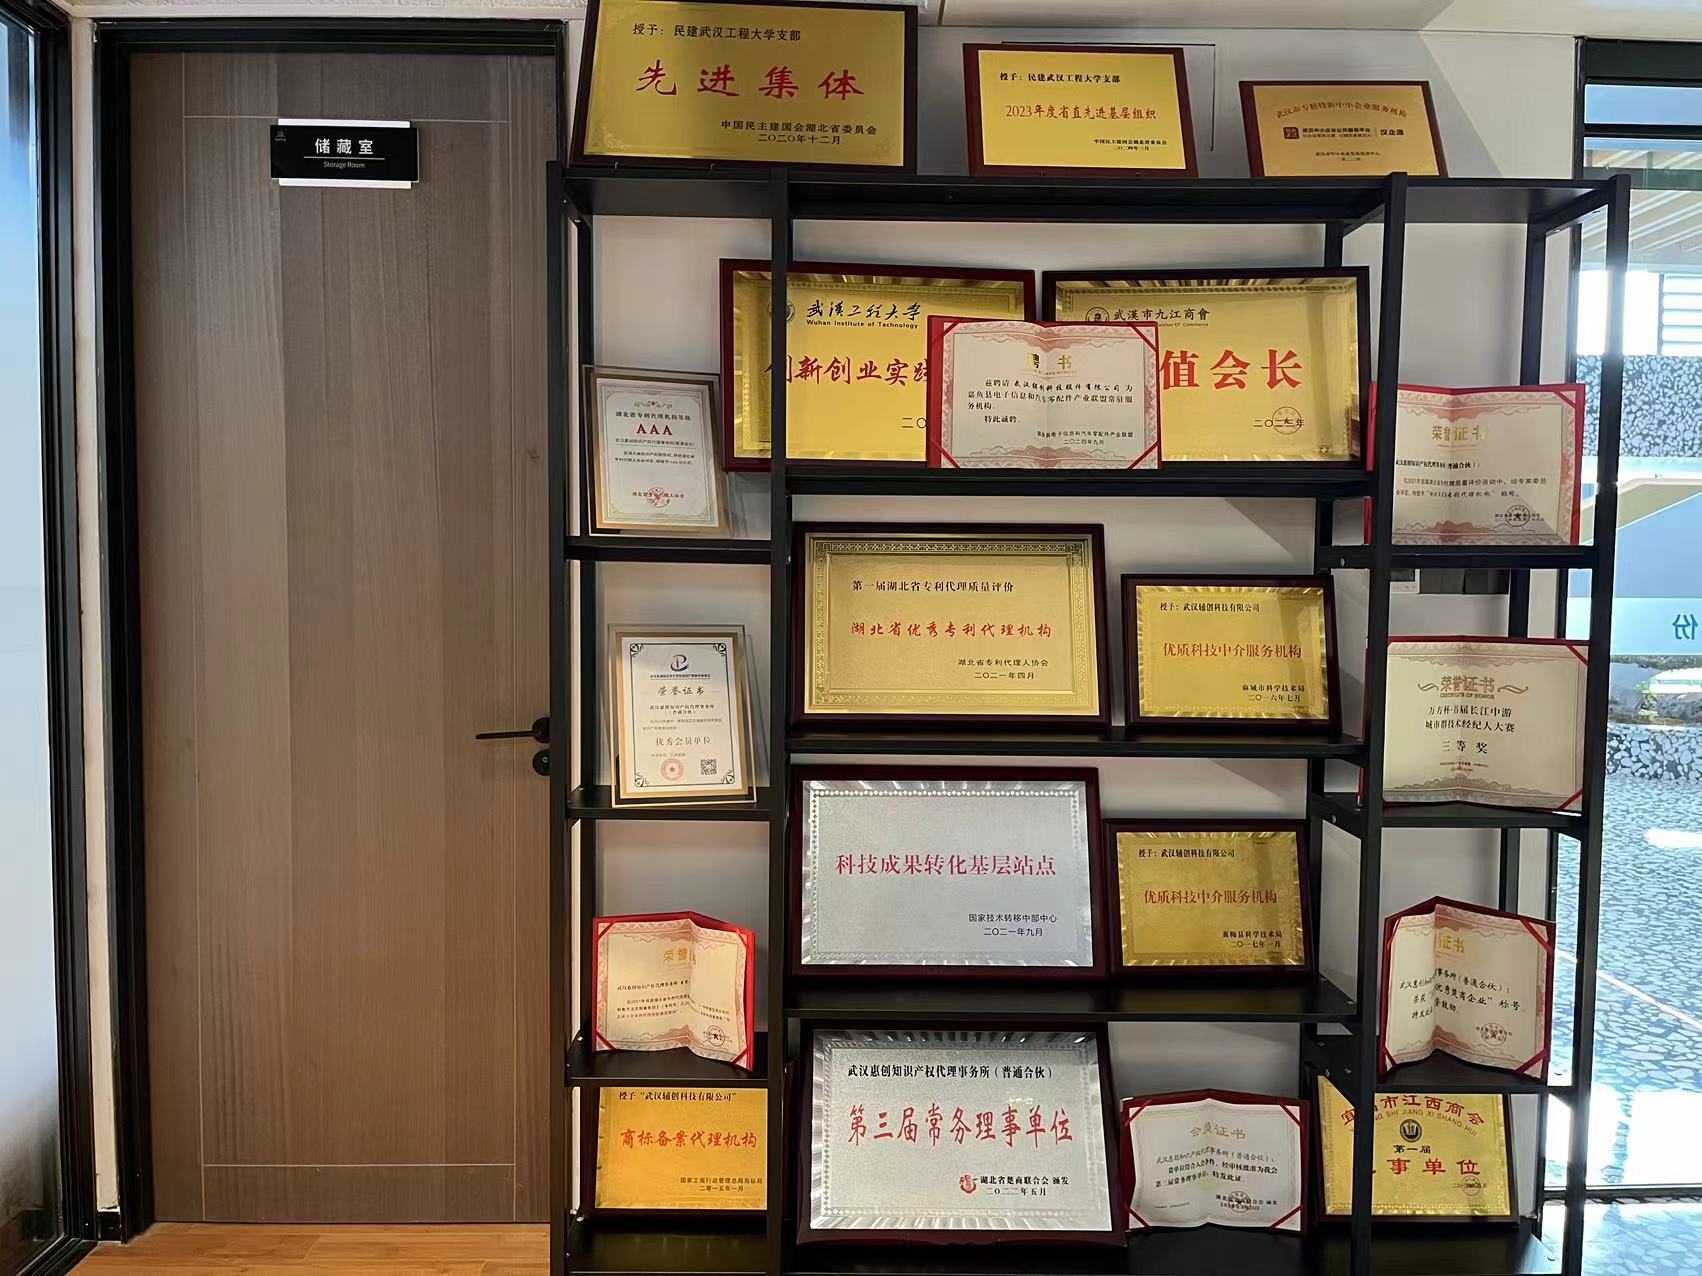 储藏室
Storage Room
授予：民建武汉工程大学支部
先进集体
中国民主建国会湖北省委员会
二〇二〇年十二月
授予：民建武汉工程大学支部
2023年度省直先进基层组织
中国民主建国会湖北省委员会
二〇二四年三月
武汉市专精特新中小企业服务机构
武汉中小企业公共服务平台
汉企通
武漢工程大学
Wuhan Institute of Technology
创新创业实践
二〇
武漢市九江商會
值会长
二〇二二年
聘书
兹聘请 武汉辅创科技股份有限公司 为
嘉鱼县电子信息和汽车零配件产业联盟常驻服
务机构。
特此诚聘。
嘉鱼县电子信息和汽车零配件产业联盟
二〇二四年九月
湖北省专利代理机构等级
AAA
荣誉证书
武汉惠创知识产权代理事务所（普通合伙）：
第一届湖北省专利代理质量评价
湖北省优秀专利代理机构
湖北省专利代理人协会
二〇二一年四月
授予：武汉辅创科技有限公司
优质科技中介服务机构
麻城市科学技术局
二〇一六年七月
荣誉证书
武汉惠创知识产权代理事务所
（普通合伙）
优秀会员单位
荣誉证书
万方杯·首届长江中游
城市群技术经纪人大赛
三等奖
科技成果转化基层站点
国家技术转移中部中心
二〇二一年九月
授予：武汉辅创科技有限公司
优质科技中介服务机构
黄梅县科学技术局
二〇一七年一月
荣誉
证书
事务所（普通合伙）：
优秀楚商企业”称号
授予“武汉辅创科技有限公司”
商标备案代理机构
国家工商行政管理总局商标局
二零一五年一月
武汉惠创知识产权代理事务所（普通合伙）
第三届常务理事单位
湖北省楚商联合会 颁发
二〇二二年五月
会员证书
武汉惠创知识产权代理事务所（普通合伙）：
贵单位符合入会条件，经审核批准为我会
第三届常务理事单位，特发此证。
湖北省楚商联合会 颁发
市江西商会
SHI JIANG XI SHANG HUI
第一届
事单位
份